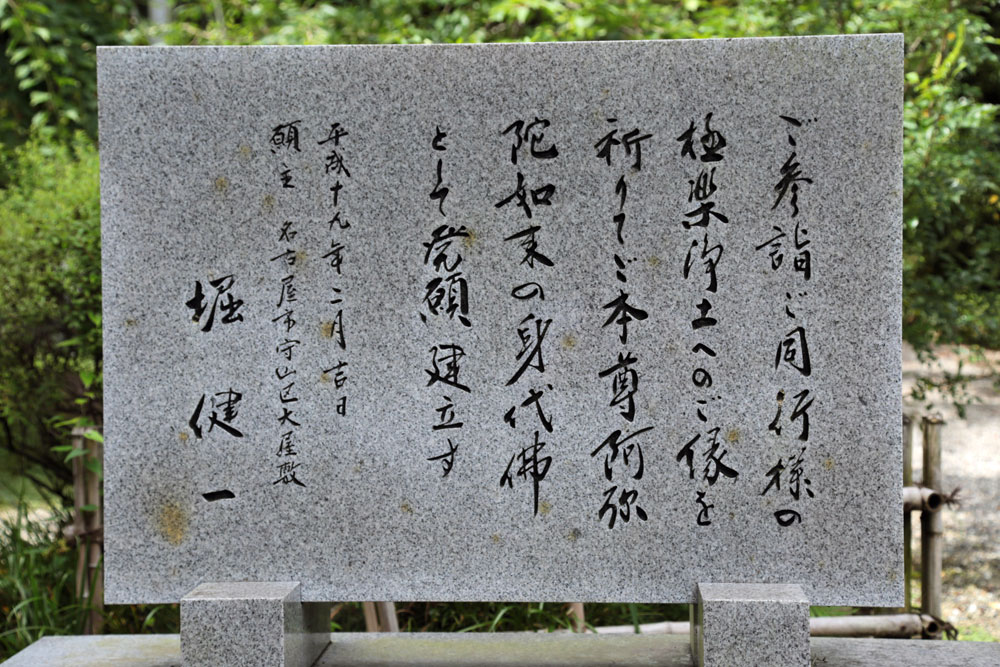 ご参詣ご同行様の
極楽浄土へのご縁を
祈りてご本尊阿弥
陀如来の身代佛
として発願建立す
平成十九年二月吉日
願主 名古屋市守山区大屋敷
堀健一